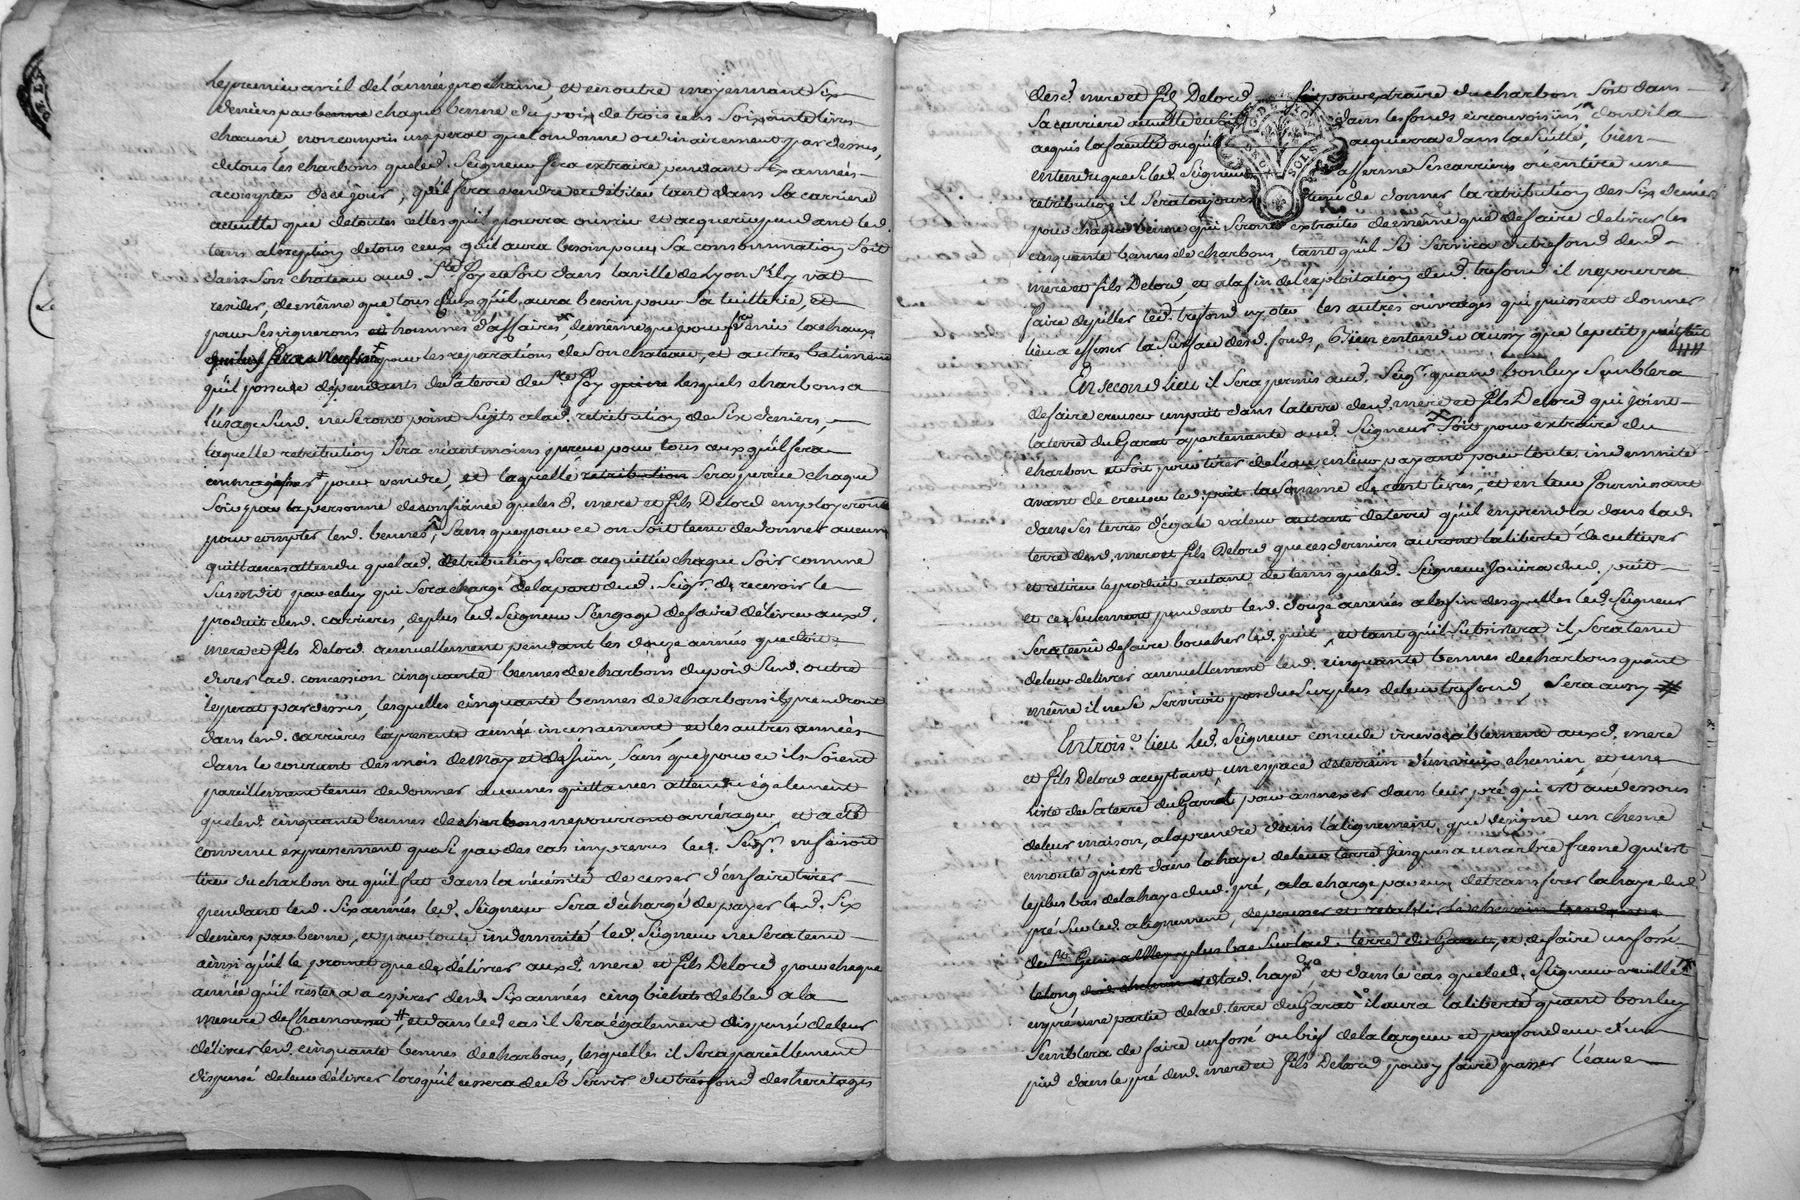 le premier avril de l'année prochaine, et en outre moyennant six
deniers par benne chaque benne du poix de trois cens soixante livres
chacune, non compris le perat que l'on donne ordinairement par dessus,
de tous les charbons que led. Seigneur fera extraire pendant six années
a compter de ce jour, qu'il fera vendre et debiter tant dans sa carriere
actuelle que de toutes celles qu'il pourra ouvrir et acquerir pendant led.
tems a l'exeption de tous ceux qu'il aura besoin pour sa consommation soit
dans son chateau aud. Ste Foy et soit dans la ville de Lyon s'il y vat
resider, de même que tous ceux qu'il aura besoin pour sa tuillerie et
pour ses vignerons et hommes d'affaires de même que pour la chaux
pour les reparations de son chateau, et autres batimens
qu'il possede dépendants de sa terre de Ste Foy lesquels charbons a
l'usage susd. ne seront point sujets a lad. retribution de six deniers,
laquelle retribution sera néantmoins perçue pour tous ceux qu'il fera
pour vendre, et laquelle retribution sera perçue chaque
soir par la personne de confiance que lesd. mere et fils Delord employeront
pour compter led. bennes, sans que pour ce on soit tenu de donner aucune
quittances attendu que lad. retribution sera acquittée chaque soir comme
susdit par celuy qui sera chargé de la part dud. Seigr. de recevoir le
produit desd. carrieres, de plus led. Seigneur s'engage de faire délivrer auxd.
mere et fils Delord annuellement pendant les douze années que doit
durer lad. concession cinquante bennes de charbons du poid susd. outre
le perat par dessus, lesquelles cinquante bennes de charbons ils prendront
dans lesd. carrieres la presente année incessament et les autres années
dans le courant des mois de may et de juin, sans que pour ce ils soient
pareillement tenus de donner aucunes quittances attendu également
que led. cinquante bennes de charbons ne pourront arrérager, et a été
convenu expressement que si par des cas imprevus led. Seigr. en faisant
tirer du charbon ou qu'il fut dans la nécéssité de cesser d'en faire tirer
pendant led. six années led. Seigneur sera déchargé de payer led. six
deniers par benne, et pour toute indemnité led. Seigneur ne sera tenu
ainsi qu'il le promet que de délivrer auxd. mere et fils Delord pour chaque
année qu'il restera a expirer desd. six années cinq bichets de bled a la
mesure de, et dans led. cas il sera également dispensé de leur
délivrer led. cinquante bennes de charbons, lesquelles il sera pareillement
dispensé de leur délivrer lorsqu'il cessera de se servir du tréfond des héritages
desd. mere et fils Delord soit pour extraire du charbon soit dans
sa carriere actuelle dans les fonds circonvoisins dont il a
acquis la faculté ou qu'il acquerra dans la suitte, bien
entendu que si led. Seigneur afferme ses carrieres ou en tire une
retribution il sera toujours tenu de donner la retribution des six deniers
pour chaque benne qui seront extraites de même que de faire delivrer les
cinquante bennes de charbons, tant qu'il se servira du trefond desd.
mere et fils Delord, et a la fin de l'exploitation dud. trefond il ne pourra
faire depiller led. trefond ny oter les autres ouvrages qui puissent donner
lieu a affesser la surface desd. fonds, bien entendu aussy que le petit
En second lieu il sera permis aud. Seigr. quand bon luy semblera
de faire creuser un puit dans la terre desd. mere et fils Delord qui joint
la terre du Garat appartenante aud. Seigneur soit pour extraire du
charbon et soit pour tirer de l'eau, en leur payant pour toute indemnité
avant de creuser led. puit la somme de cent livres, et en leur fournissant
dans ses terres d'égale valeur autant de terre qu'il en prendra dans lad.
terre desd. mere et fils Delord que ces derniers auront la liberté de cultiver
et retirer le produit autant de tems que led. Seigneur jouira dud. puit
et ce seulement pendant led. douze années a la fin desquelles led. Seigneur
sera tenu de faire boucher led. puit, et tant qu'il subsistera il sera tenu
de leur delivrer annuellement led. cinquante bennes de charbons quand
même il ne se serviroit pas du surplus de leur trefond, sera aussy #
En trois.e lieu led. Seigneur concede irrevocablement auxd. mere
et fils Delord acceptant, un espace de terrain d'un vieux chemin, et une
liste de sa terre du Garrat pour annexer dans leur pré qui est au dessous
de leur maison, a la prendre dans l'alignement que designe un chesne
émouté qui est dans la haye de leur terre jusques a un arbre fresne qui est
le plus bas de la haye dud. pré, a la charge par eux de transferer la haye dud.
pré sur led. alignement, de pousser et retablir le chemin tendant
de St. Genis a plus bas sur lad. terre du Garat, et de faire un fossé
le long de lad. haye et dans le cas que led. Seigneur veuille
en pré une partie de lad. terre du Garat il aura la liberté quand bon luy
semblera de faire un fossé ou bief de la largeur et profondeur d'un
pied dans le pré desd. mere et fils Delord pour y faire passer l'eau